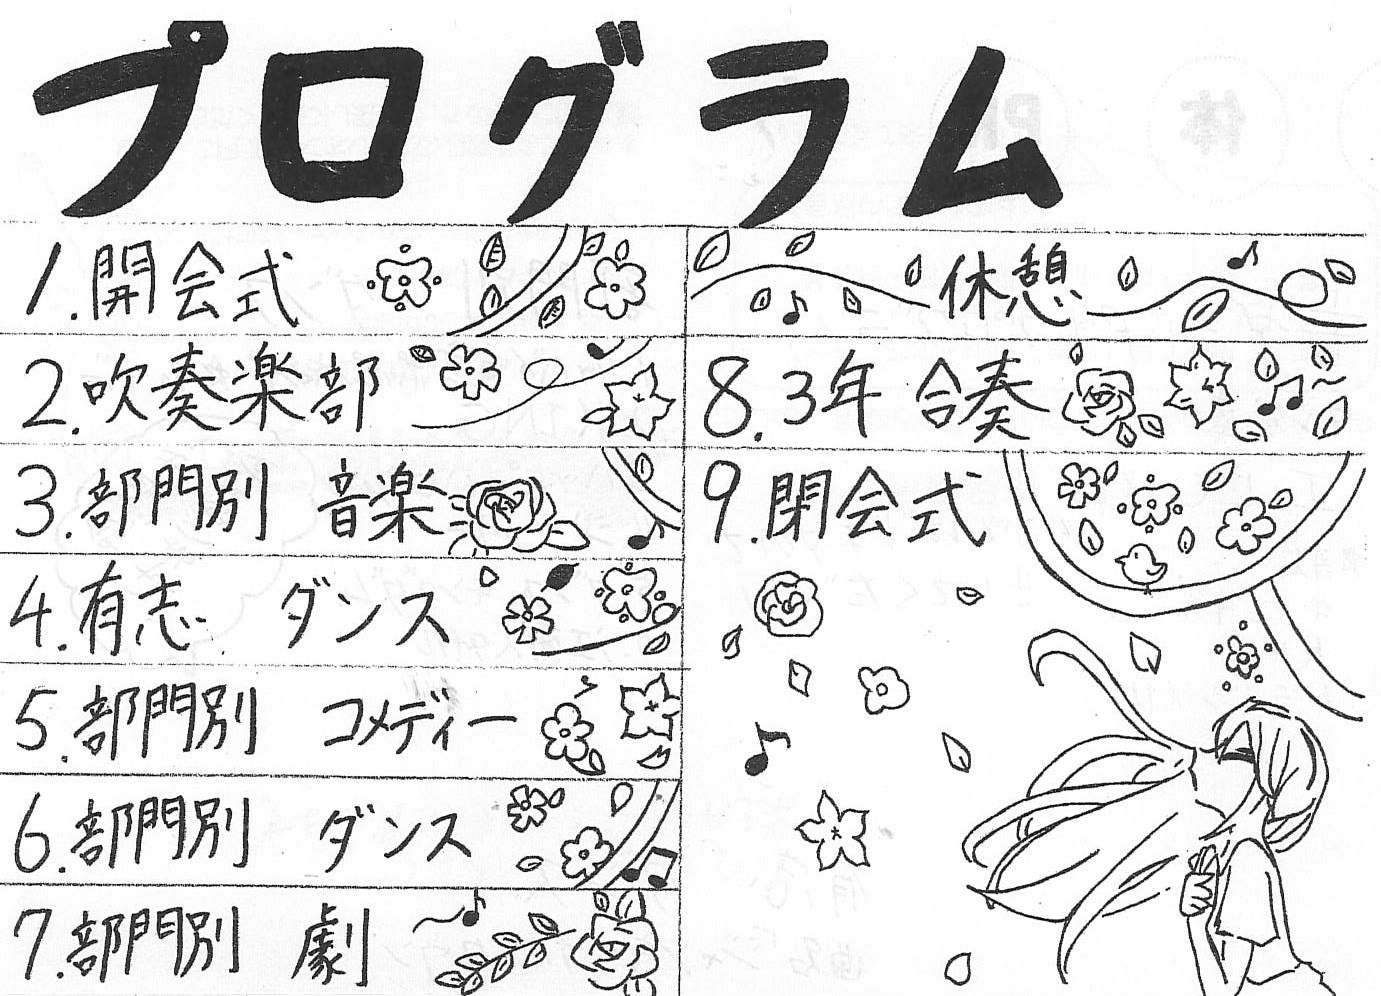 プログラム
1.開会式
2.吹奏楽部
3.部門別 音楽
4.有志 ダンス
5.部門別 コメディー
6.部門別 ダンス
7.部門別 劇
休憩
8.3年 合奏
9.閉会式